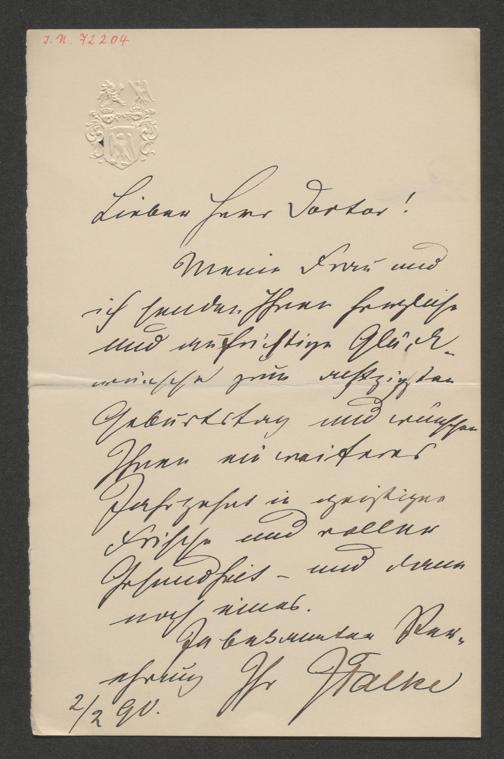 I. N. 72204
Lieber Herr Doctor!
Meine Frau und
ich senden Ihnen herzliche
und aufrichtige Glück-
wünsche zum achtzigsten
Geburtstag und wünschen
Ihnen ein weiteres
Jahrzehnt in geistiger
Frische und voller
Gesundheit – und dann
noch eines.
In bekannter Ver-
ehrung Ihr JFalke
2/2 90.